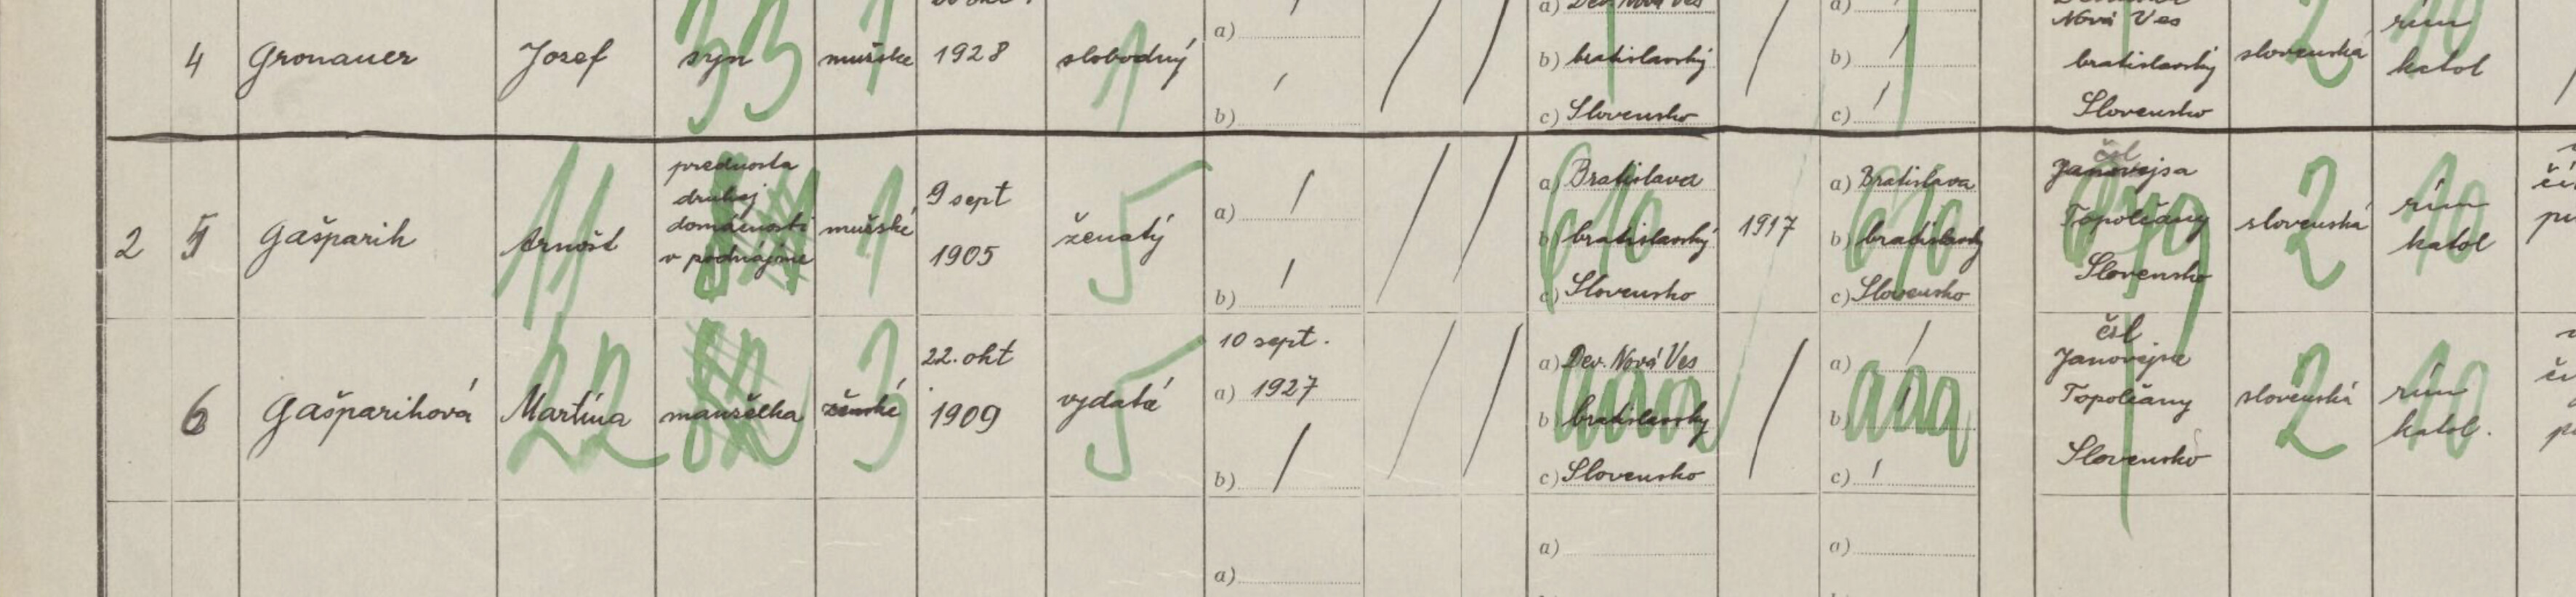 4 Gronauer Jozef syn mužske 1928 slobodný
a)
b)
Dev. Nová Ves
b) bratislavský
c) Slovensko
a)
b)
c)
Nová Ves
bratislavský
Slovensko
slovenská
rím
katol
33 1 1 2 10
2 5 Gašparik Arnošt
prednosta
druhej
domácnosti
v podnájme
mužské
9 sept
1905
ženatý
a)
b)
a) Bratislava
b) bratislavský
c) Slovensko
1917
a) Bratislava
b) bratislavský
c) Slovensko
čsl
Janovejsa
Topolčany
Slovensko
slovenská
rím
katol
11 1 5 2 10
6 Gašpariková Martina manželka ženské
22. okt
1909
vydatá
10 sept.
a) 1927
b)
a) Dev. Nová Ves
b) bratislavsky
c) Slovensko
a)
b)
c)
čsl
Janovejsa
Topolčany
Slovensko
slovenská
rím
katol.
22 3 5 2 10
a)
a)
a)